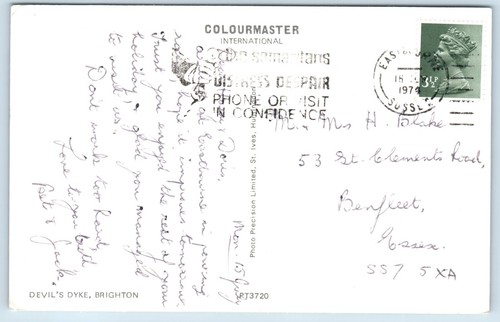 COLOURMASTER
INTERNATIONAL
the samaritans
DISTRESS DESPAIR
PHONE OR VISIT
IN CONFIDENCE
EASTBOURNE
18
1979
SUSSEX
3½P
Mon. 15 July
Doris,
at Eastbourne in pouring
hope it improves tomorrow.
Trust you enjoyed the rest of your
holiday & glad you managed
to visit us.
Don't work too hard,
Love to you both
Bet & Jack.
Mr & Mrs H. Blake
53 St. Clements Road,
Benfleet,
Essex.
SS7 5XA
Photo Precision Limited, St. Ives,
DEVIL'S DYKE, BRIGHTON
PT3720